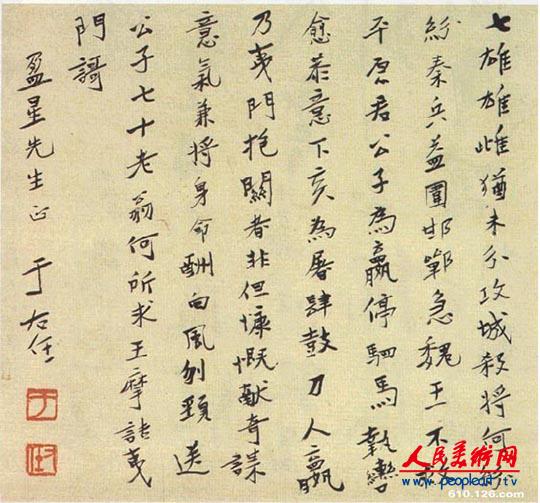 七雄雄雌猶未分攻城殺將何紛
紛秦兵益圍邯鄲急魏王不救
平原君公子為嬴停駟馬執轡
愈恭意下亥為屠肆鼓刀人嬴
乃夷門抱關者非但慷慨獻奇謀
意氣兼將身命酬向風刎頸送
公子七十老翁何所求王摩詰夷
門謌
盈星先生正 于右任
人民美术网
www.peopleart.tv
610.126.com